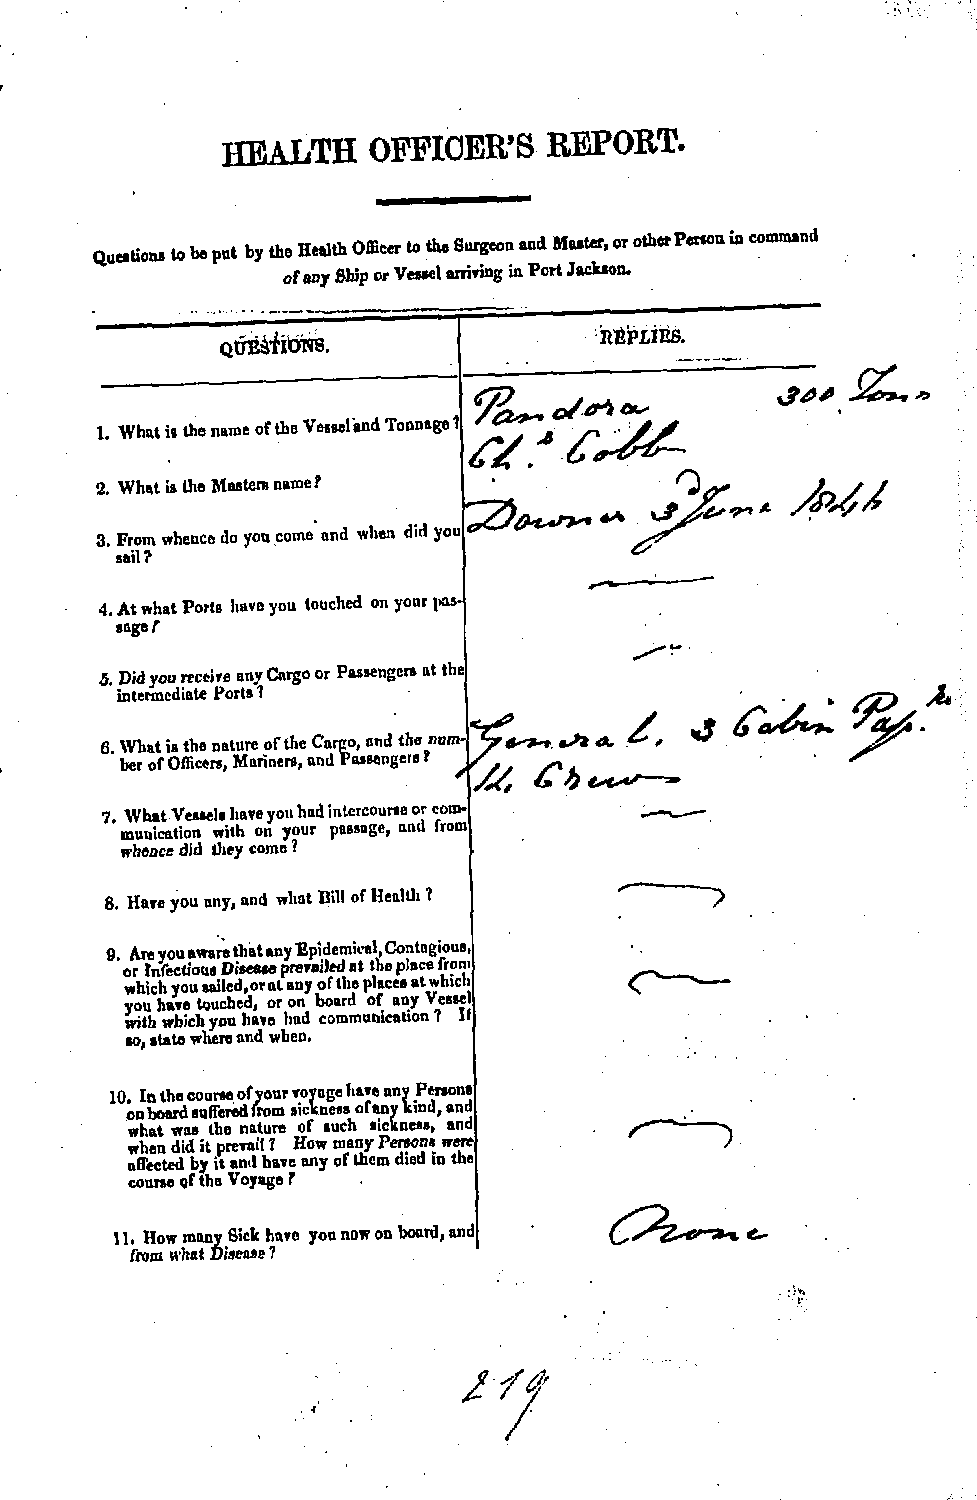 HEALTH OFFICER'S REPORT.
Questions to be put by the Health Officer to the Surgeon and Master, or other Person in command
of any Ship or Vessel arriving in Port Jackson.
QUESTIONS.
REPLIES.
1. What is the name of the Vessel and Tonnage?
Pandora 300 Tons
2. What is the Masters name?
Chs. Cobb
3. From whence do you come and when did you
sail?
Downes 3d June 1846
4. At what Ports have you touched on your pas-
sage?
5. Did you receive any Cargo or Passengers at the
intermediate Ports?
6. What is the nature of the Cargo, and the num-
ber of Officers, Mariners, and Passengers?
General. 3 Cabin
Crew
7. What Vessels have you had intercourse or com-
munication with on your passage, and from
whence did they come?
8. Have you any, and what Bill of Health?
9. Are you aware that any Epidemical, Contagious,
or Infectious Disease prevailed at the place from
which you sailed, or at any of the places at which
you have touched, or on board of any Vessel
with which you have had communication? If
so, state where and when.
10. In the course of your voyage have any Persons
on board suffered from sickness of any kind, and
what was the nature of such sickness, and
when did it prevail? How many Persons were
affected by it and have any of them died in the
course of the Voyage?
11. How many Sick have you now on board, and
from what Disease?
None
219